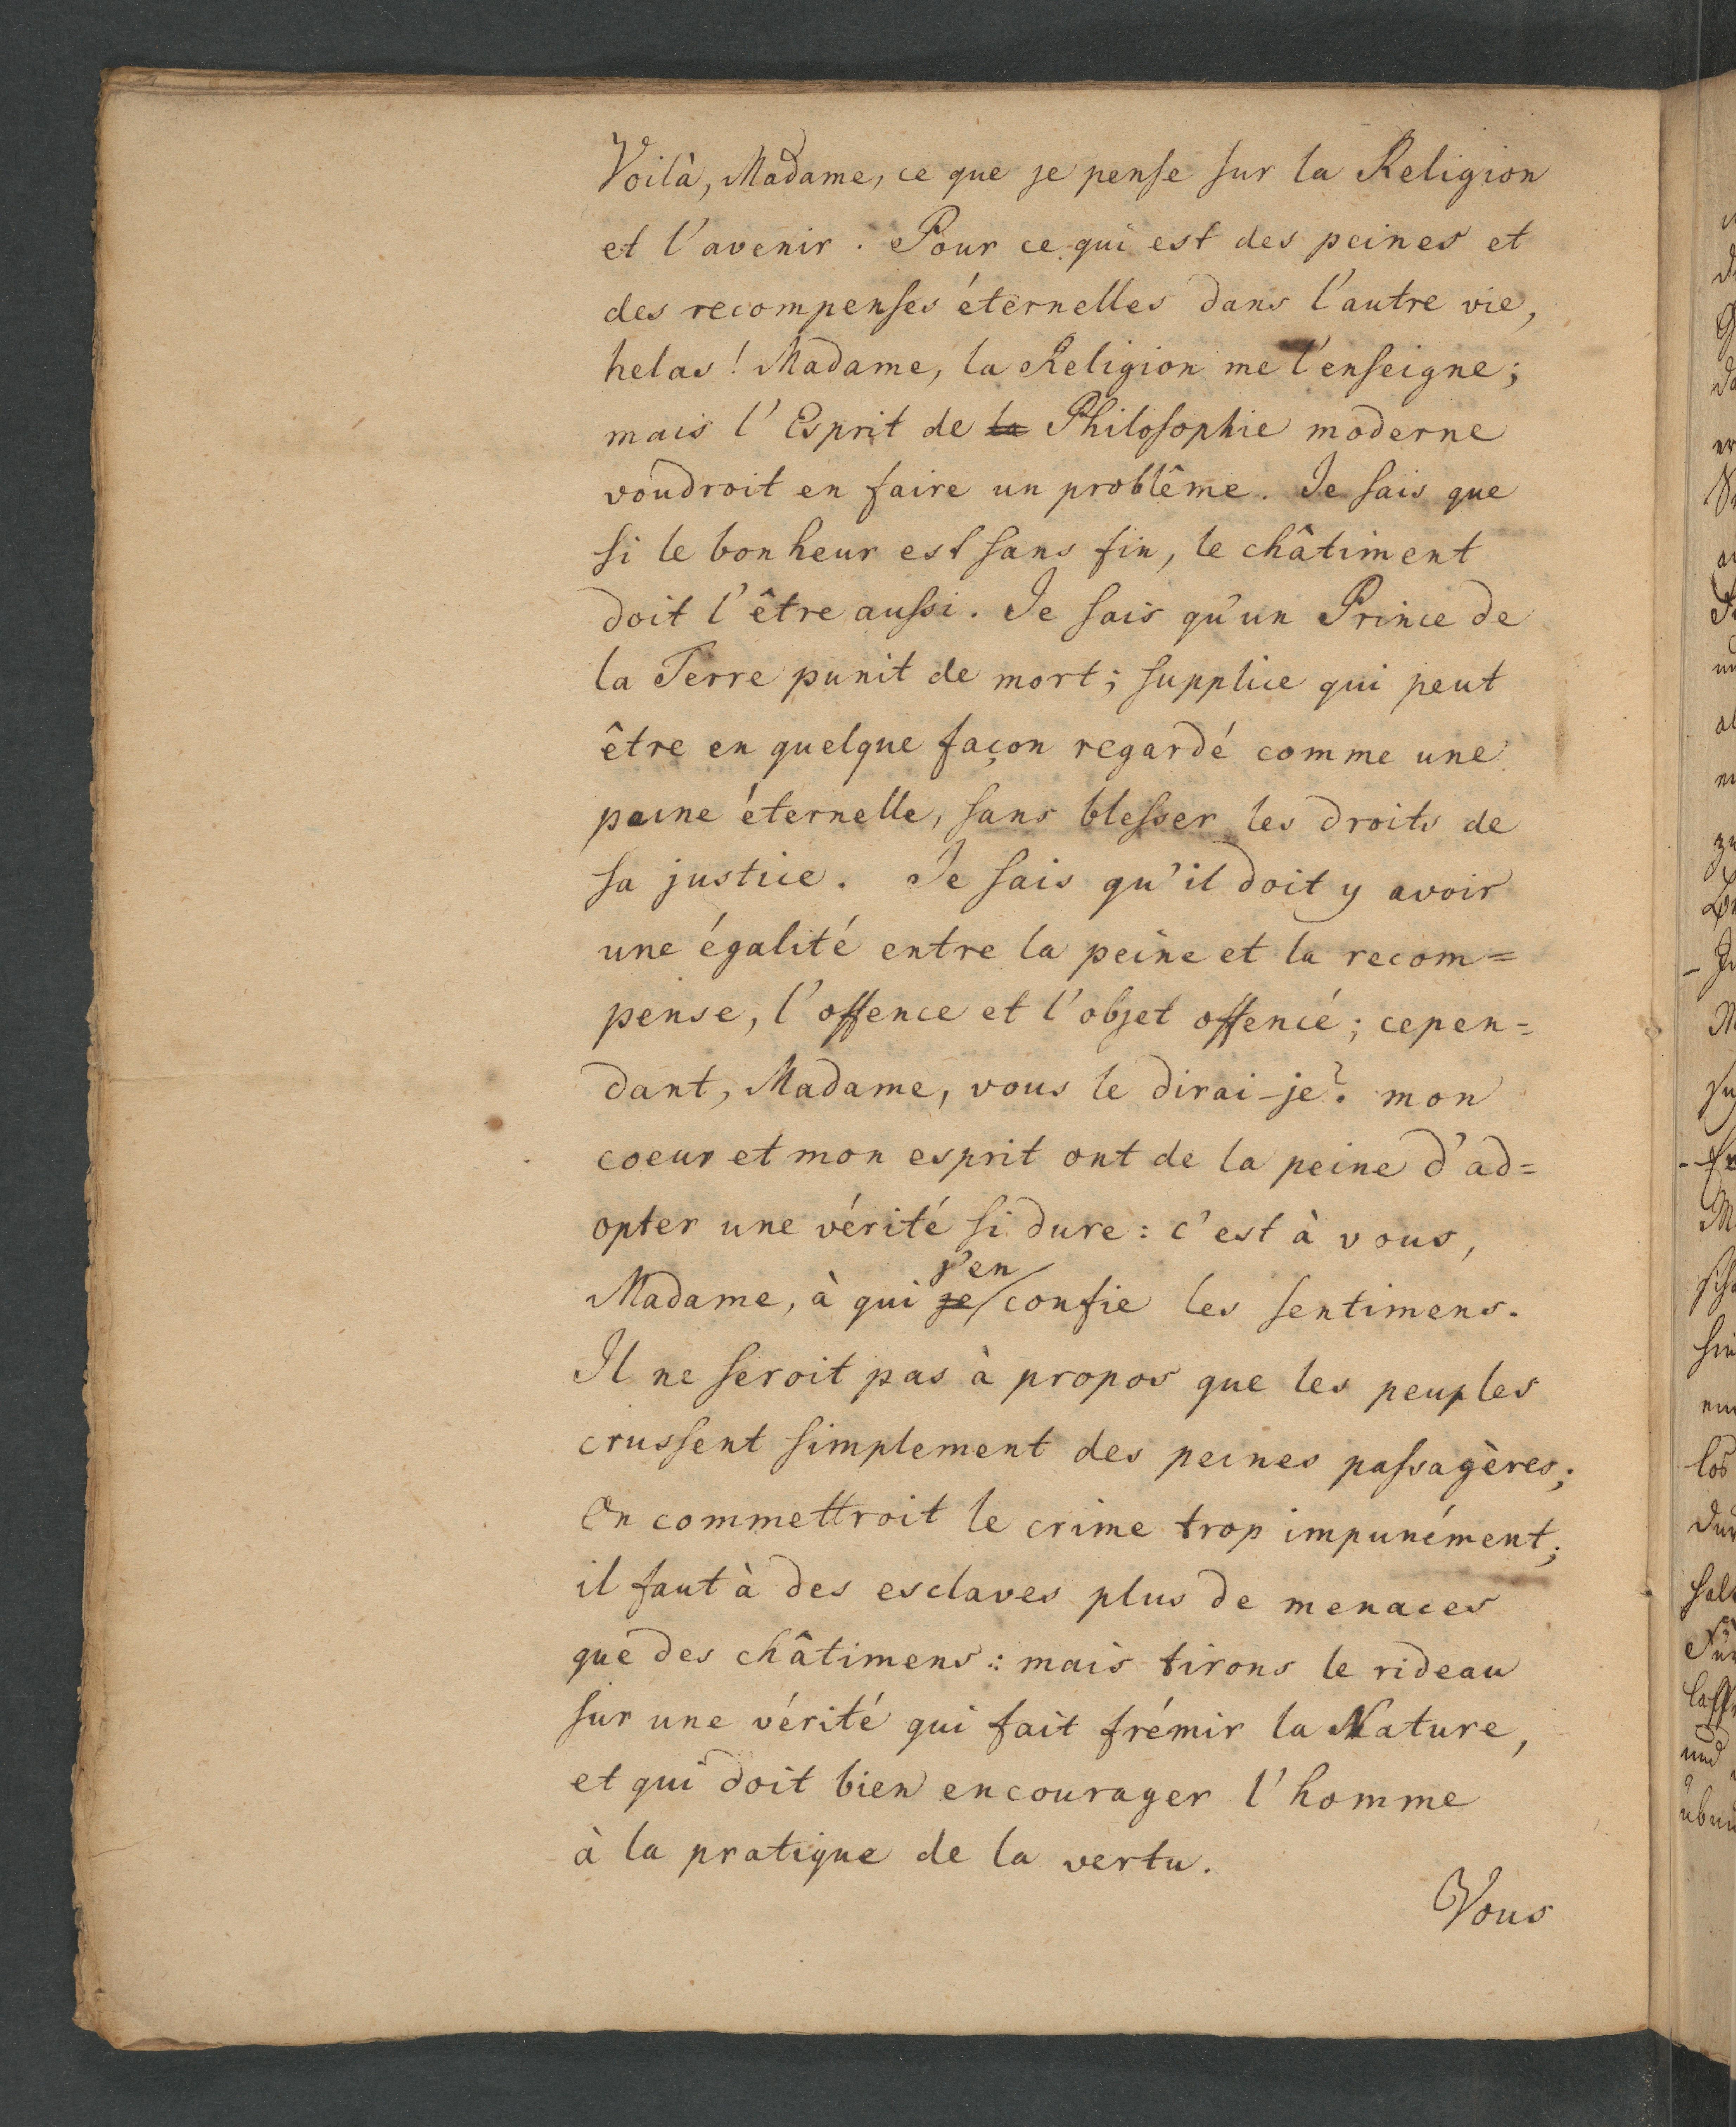 Voilà, Madame, ce que je pense sur la Religion
et l'avenir. Pour ce qui est des peines et
des recompenses éternelles dans l'autre vie,
helas! Madame, la Religion me l'enseigne;
mais l'Esprit de la Philosophie moderne
voudroit en faire un problême. Je sais que
si le bonheur est sans fin, le châtiment
doit l'être aussi. Je sais qu'un Prince de
la Terre punit de mort; supplice qui peut
être en quelque façon regardé comme une
peine éternelle, sans blesser les droits de
sa justice. Je sais qu'il doit y avoir
une égalité entre la peine et la recom=
pense, l'offence et l'objet offencé; cepen=
dant, Madame, vous le dirai-je? mon
coeur et mon esprit ont de la peine d'ad=
opter une vérité si dure: c'est à vous,
j'en
Madame, à qui je confie les sentimens.
Il ne seroit pas à propos que les peuples
crussent simplement des peines passagères;
On commettroit le crime trop impunément;
il faut à des esclaves plus de menaces
que des châtimens: mais tirons le rideau
sur une vérité qui fait frémir la Nature,
et qui doit bien encourager l'homme
à la pratique de la vertu.
Vous